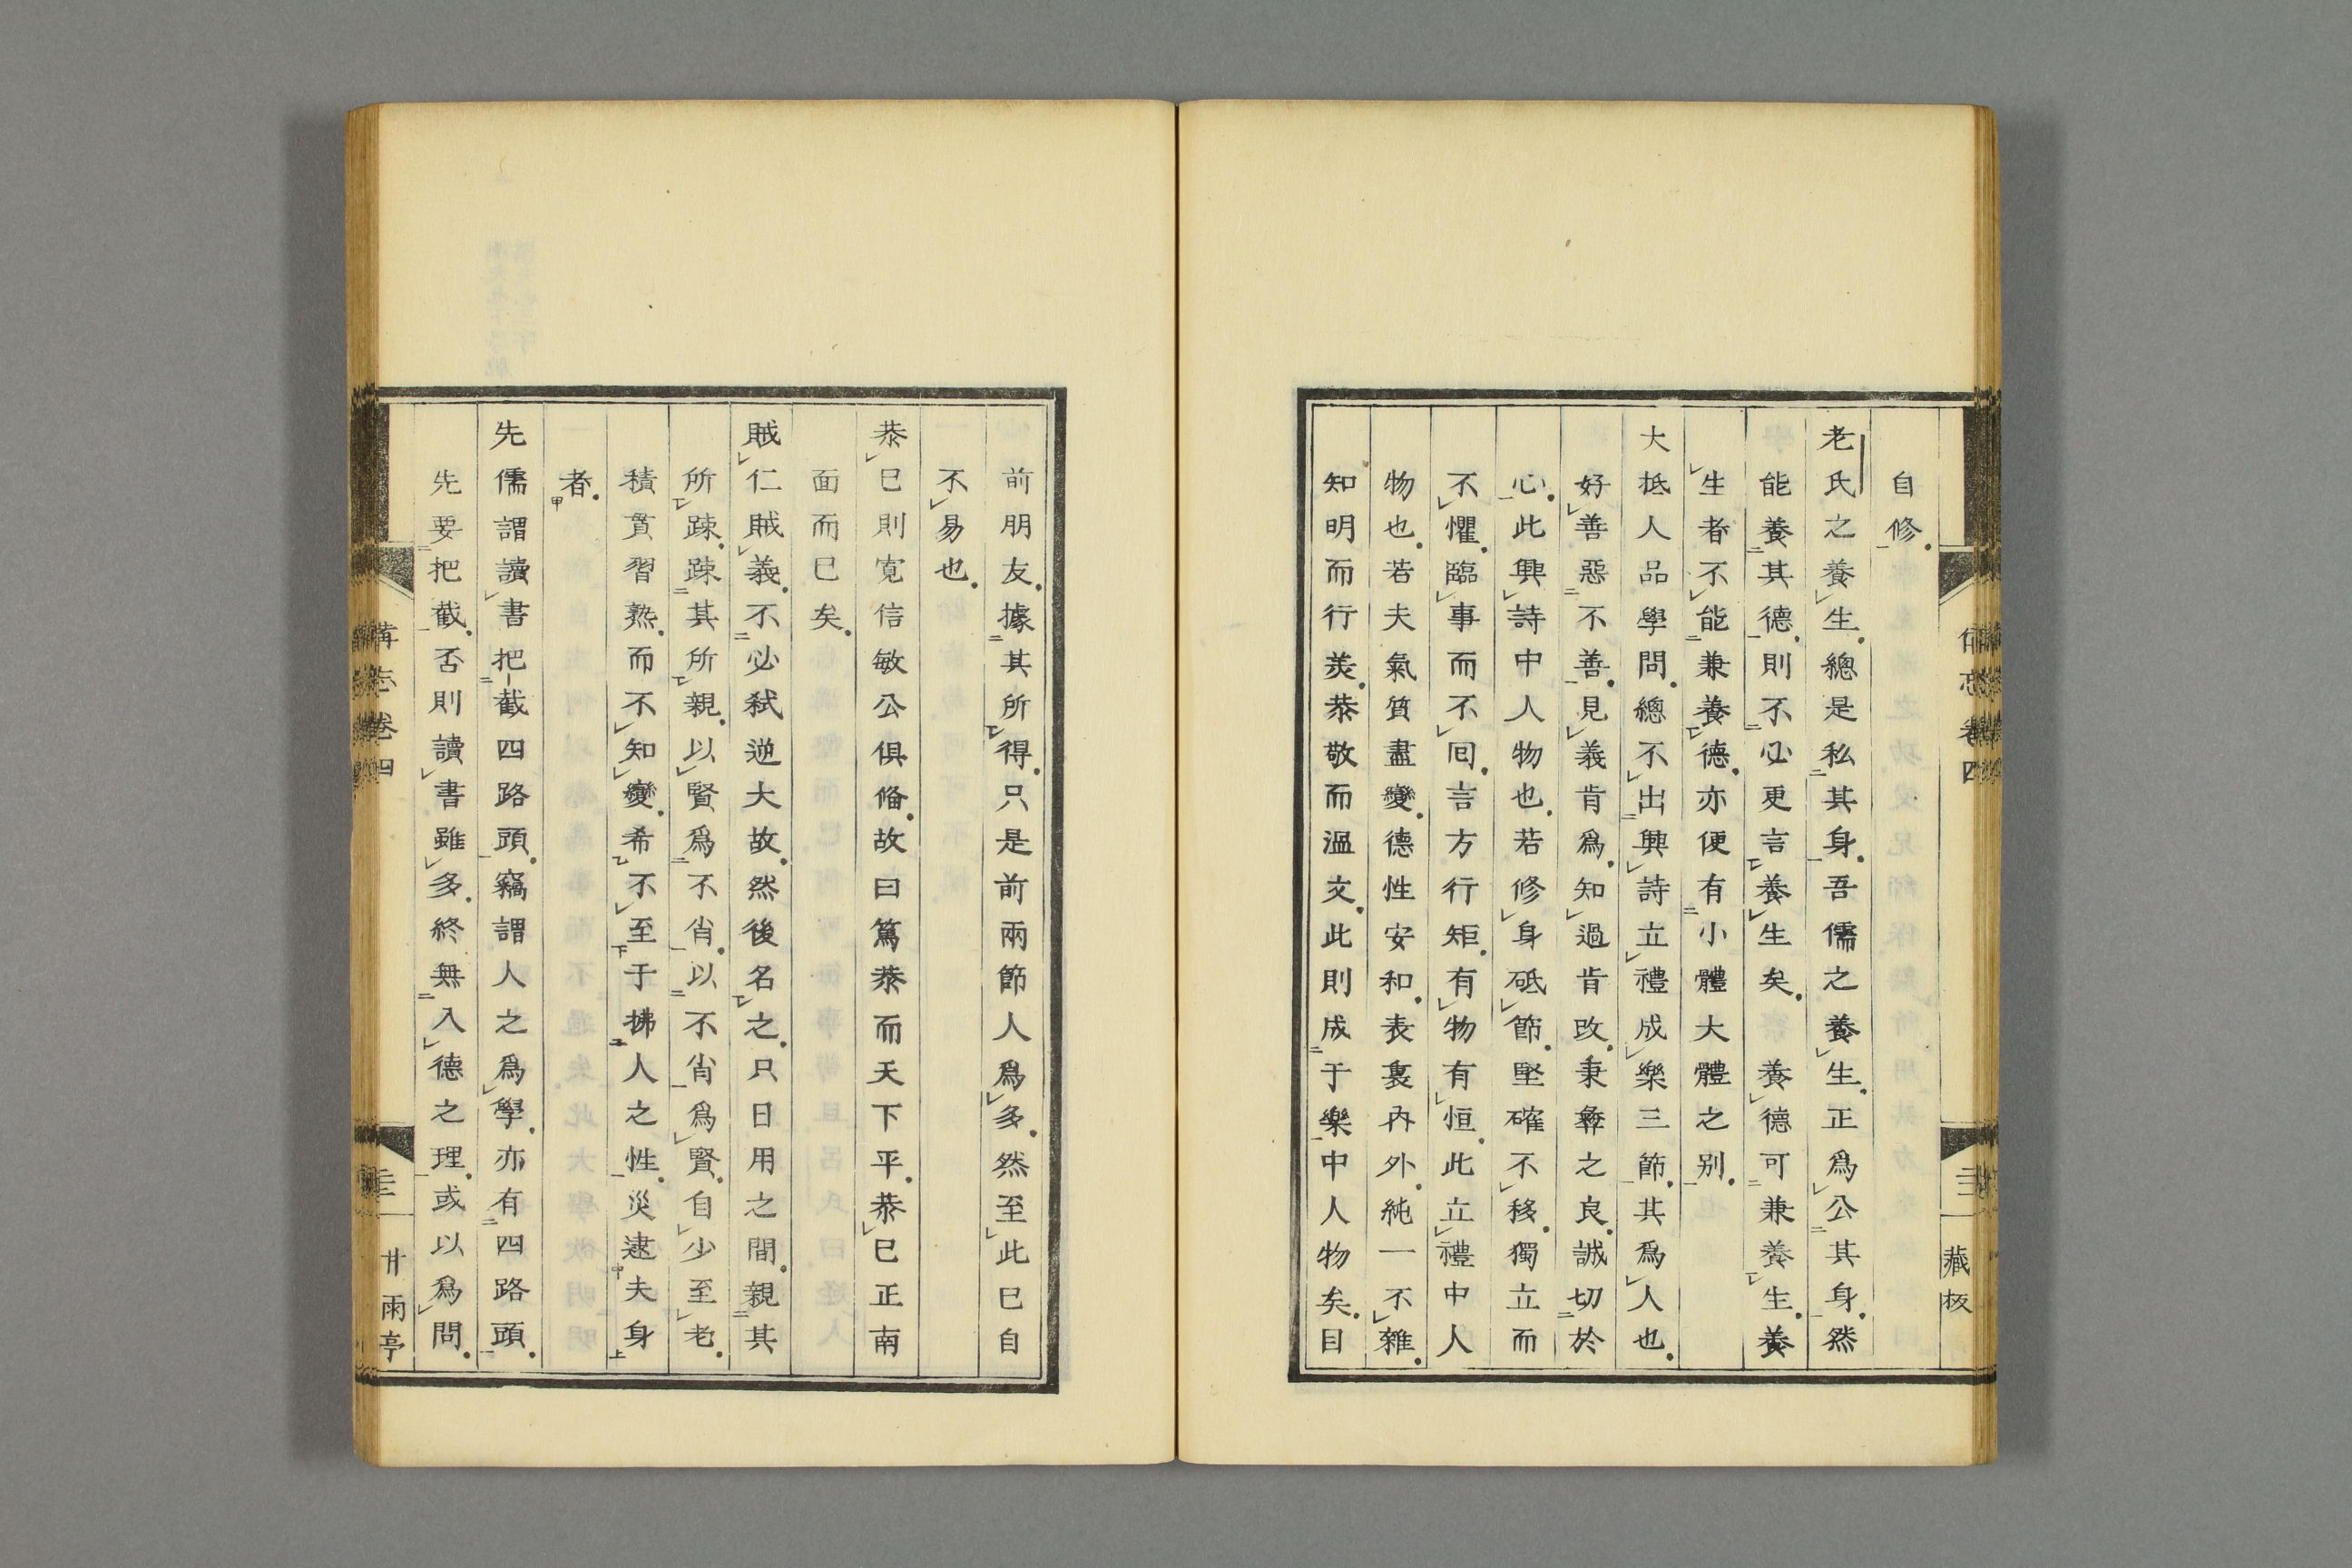 自修
老氏之養生總是私其身吾儒之養生正爲公其身然
能養其德則不必更言養生矣養德可兼養生養
生者不能兼養德亦便有小體大體之別
大抵人品學問總不出興詩立禮成樂三節其爲人也
好善惡不善見義肯爲知過肯改秉彝之良誠切於
心此興詩中人物也若修身砥節堅確不移獨立而
不懼臨事而不回言方行矩有物有恒此立禮中人
物也若夫氣質盡變德性安和表裏內外純一不雜
知明而行羙恭敬而溫文此則成于樂中人物矣目
藏板
前朋友據其所得只是前兩節人爲多然至此已自
不易也
恭己則寬信敏公俱偹故曰篤恭而天下平恭己正南
面而已矣
賊仁賊義不必弒逆大故然後名之只日用之間親其
所疎疎其所親以賢爲不肖以不肖爲賢自少至老
積貫習熟而不知變希不至于拂人之性災逮夫身
者
先儒謂讀書把截四路頭竊謂人之爲學亦有四路頭
先要把截否則讀書雖多終無入德之理或以爲問
卷四
甘雨亭